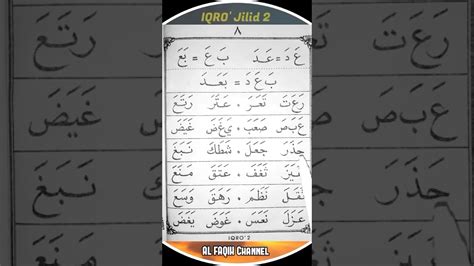 IQRO' Jilid 2
٨
عَ دَ = عَدَ بَ عَ = بَعَ
بَ عَ دَ = بَعَدَ
رَعَتَ تَعَرَ . عَتَرَ رَتَعَ
عَبَصَ صَعَبَ . يَغَضَ غَيَضَ
حَذَرَ جَعَلَ . شَطَكَ نَبَغَ
نَيَزَ تَغَفَ . عَتَقَ مَنَعَ
نَقَلَ نَظَمَ . رَهَقَ وَسَعَ
عَزَلَ نَعَسَ . عَوَضَ يَغَضَ
IQRO' 2
AL FAQIH CHANNEL